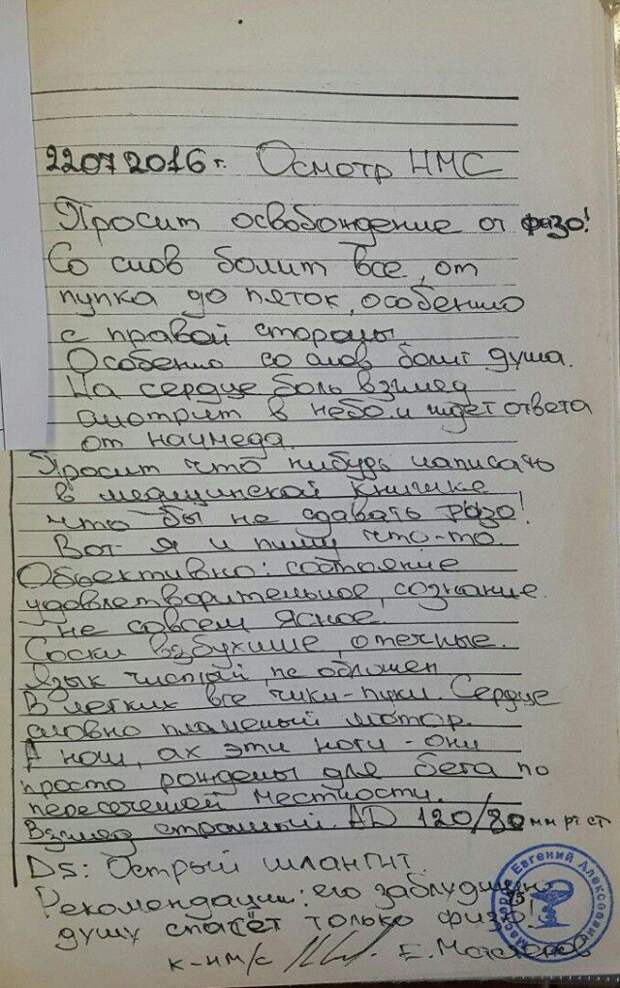 22 07 2016 г. Осмотр НМС
Просит освобождение от физо!
Со слов болит все, от
пупка до пяток, особенно
с правой стороны
Особенно со слов болит душа.
На сердце боль взгляд
смотрит в небо и ждет ответа
от начмеда.
Просит что нибудь написать
в медицинской книжке
что бы не сдавать физо!
Вот я и пишу что-то.
Объективно: состояние
удовлетворительное, сознание
не совсем ясное.
Соски взбухшие, отечные.
Язык чистый, не обложен
В легких все чики-пуки. Сердце
словно пламеный мотор.
А ноги, ах эти ноги - они
просто рождены для бега по
пересеченой местности.
Взгляд страшный. AD 120/80 мм рт ст
Ds: Острый шлангит.
Рекомендации: его заблудшую
душу спасёт только физо!
к-н м/с Е.
Евгений